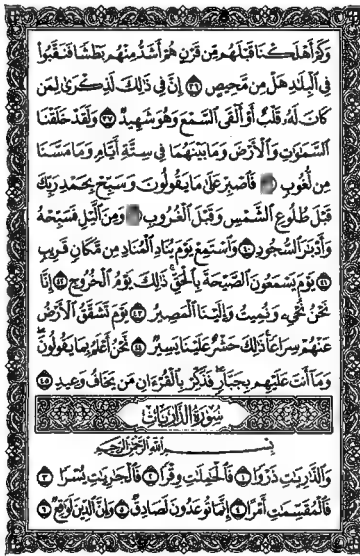 وَكَمْ أَهْلَكْنَا قَبْلَهُم مِّن قَرْنٍ هُمْ أَشَدُّ مِنْهُم بَطْشًا فَنَقَّبُوا۟
فِى ٱلْبِلَٰدِ هَلْ مِن مَّحِيصٍ ٣٦ إِنَّ فِى ذَٰلِكَ لَذِكْرَىٰ لِمَن
كَانَ لَهُۥ قَلْبٌ أَوْ أَلْقَى ٱلسَّمْعَ وَهُوَ شَهِيدٌ ٣٧ وَلَقَدْ خَلَقْنَا
ٱلسَّمَٰوَٰتِ وَٱلْأَرْضَ وَمَا بَيْنَهُمَا فِى سِتَّةِ أَيَّامٍ وَمَا مَسَّنَا
مِن لُّغُوبٍ فَٱصْبِرْ عَلَىٰ مَا يَقُولُونَ وَسَبِّحْ بِحَمْدِ رَبِّكَ
قَبْلَ طُلُوعِ ٱلشَّمْسِ وَقَبْلَ ٱلْغُرُوبِ وَمِنَ ٱلَّيْلِ فَسَبِّحْهُ
وَأَدْبَٰرَ ٱلسُّجُودِ ٤٠ وَٱسْتَمِعْ يَوْمَ يُنَادِ ٱلْمُنَادِ مِن مَّكَانٍ قَرِيبٍ
٤١ يَوْمَ يَسْمَعُونَ ٱلصَّيْحَةَ بِٱلْحَقِّ ذَٰلِكَ يَوْمُ ٱلْخُرُوجِ ٤٢ إِنَّا
نَحْنُ نُحْىِۦ وَنُمِيتُ وَإِلَيْنَا ٱلْمَصِيرُ ٤٣ يَوْمَ تَشَقَّقُ ٱلْأَرْضُ
عَنْهُمْ سِرَاعًا ذَٰلِكَ حَشْرٌ عَلَيْنَا يَسِيرٌ ٤٤ نَّحْنُ أَعْلَمُ بِمَا يَقُولُونَ
وَمَآ أَنتَ عَلَيْهِم بِجَبَّارٍ فَذَكِّرْ بِٱلْقُرْءَانِ مَن يَخَافُ وَعِيدِ ٤٥
سُورَةُ الذَّارِيَاتِ
بِسْمِ ٱللَّهِ ٱلرَّحْمَٰنِ ٱلرَّحِيمِ
وَٱلذَّٰرِيَٰتِ ذَرْوًا ١ فَٱلْحَٰمِلَٰتِ وِقْرًا ٢ فَٱلْجَٰرِيَٰتِ يُسْرًا ٣
فَٱلْمُقَسِّمَٰتِ أَمْرًا ٤ إِنَّمَا تُوعَدُونَ لَصَادِقٌ ٥ وَإِنَّ ٱلدِّينَ لَوَٰقِعٌ ٦